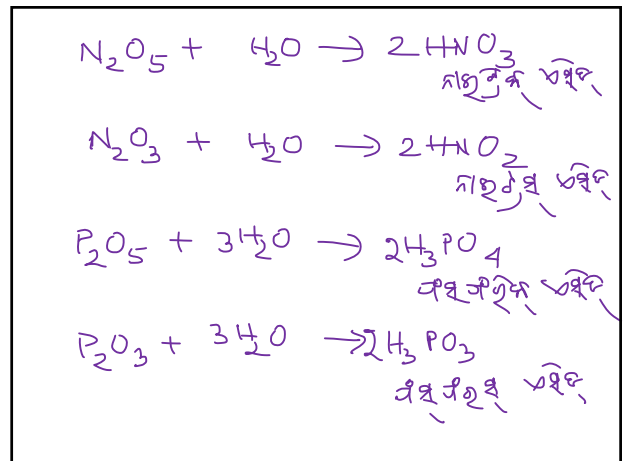 N₂O₅ + H₂O → 2HNO₃
ନାଇଟ୍ରିକ୍ ଏସିଡ୍
N₂O₃ + H₂O → 2HNO₂
ନାଇଟ୍ରସ୍ ଏସିଡ୍
P₂O₅ + 3H₂O → 2H₃PO₄
ଫସ୍ଫରିକ୍ ଏସିଡ୍
P₂O₃ + 3H₂O → 2H₃PO₃
ଫସ୍ଫରସ୍ ଏସିଡ୍